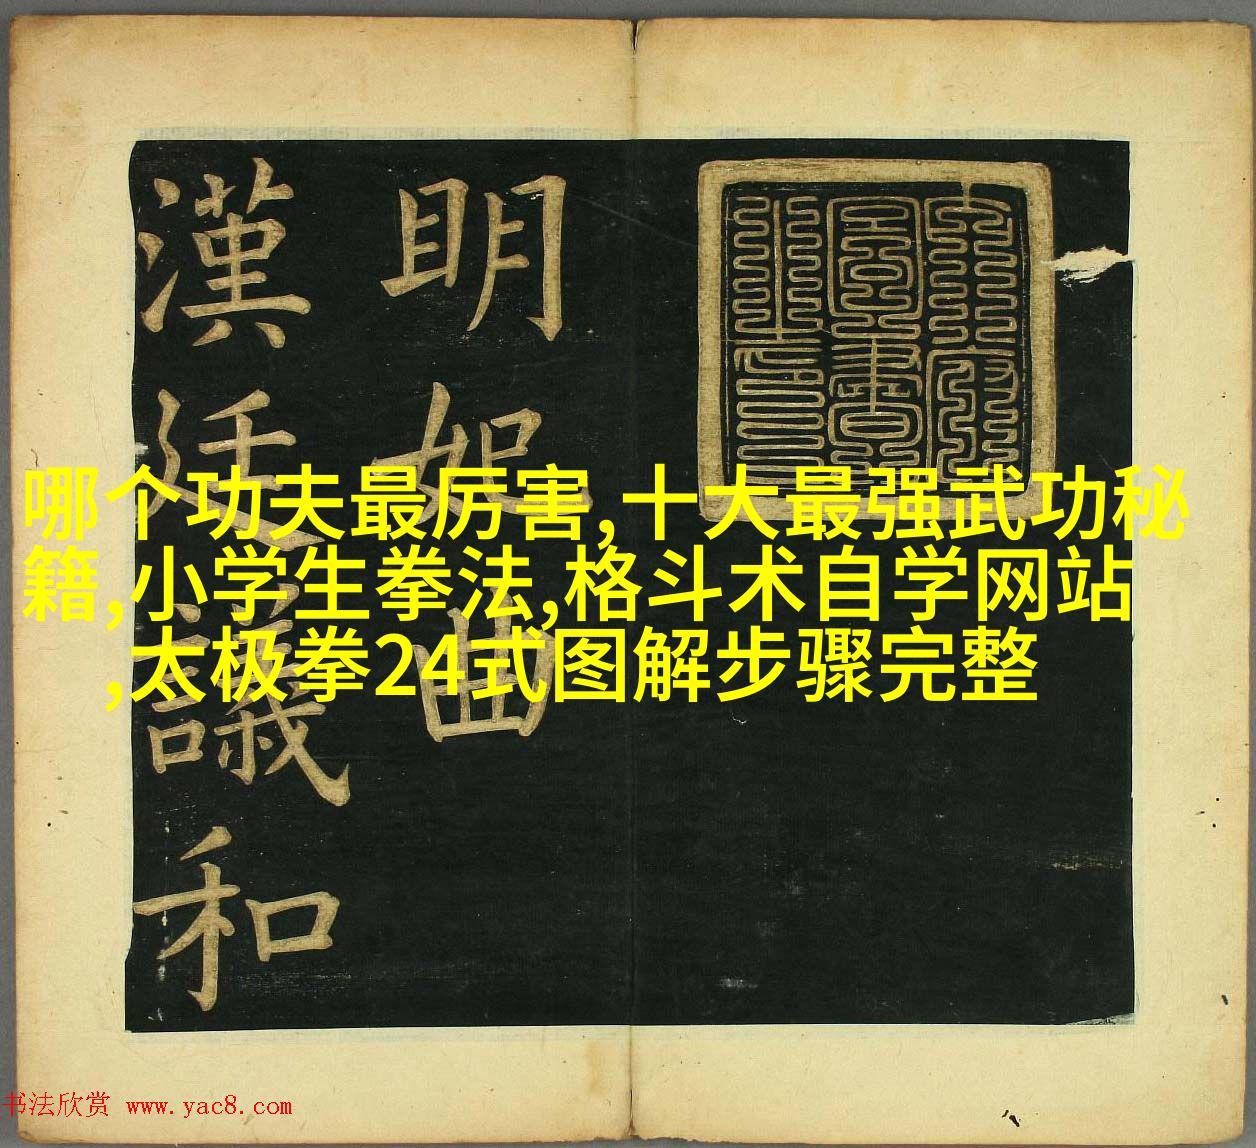 明妃曲
漢廷議和
哪个功夫最厉害,十大最强武功秘
籍,小学生拳法,格斗术自学网站
,太极拳24式图解步骤完整
书法欣赏 www.yac8.com